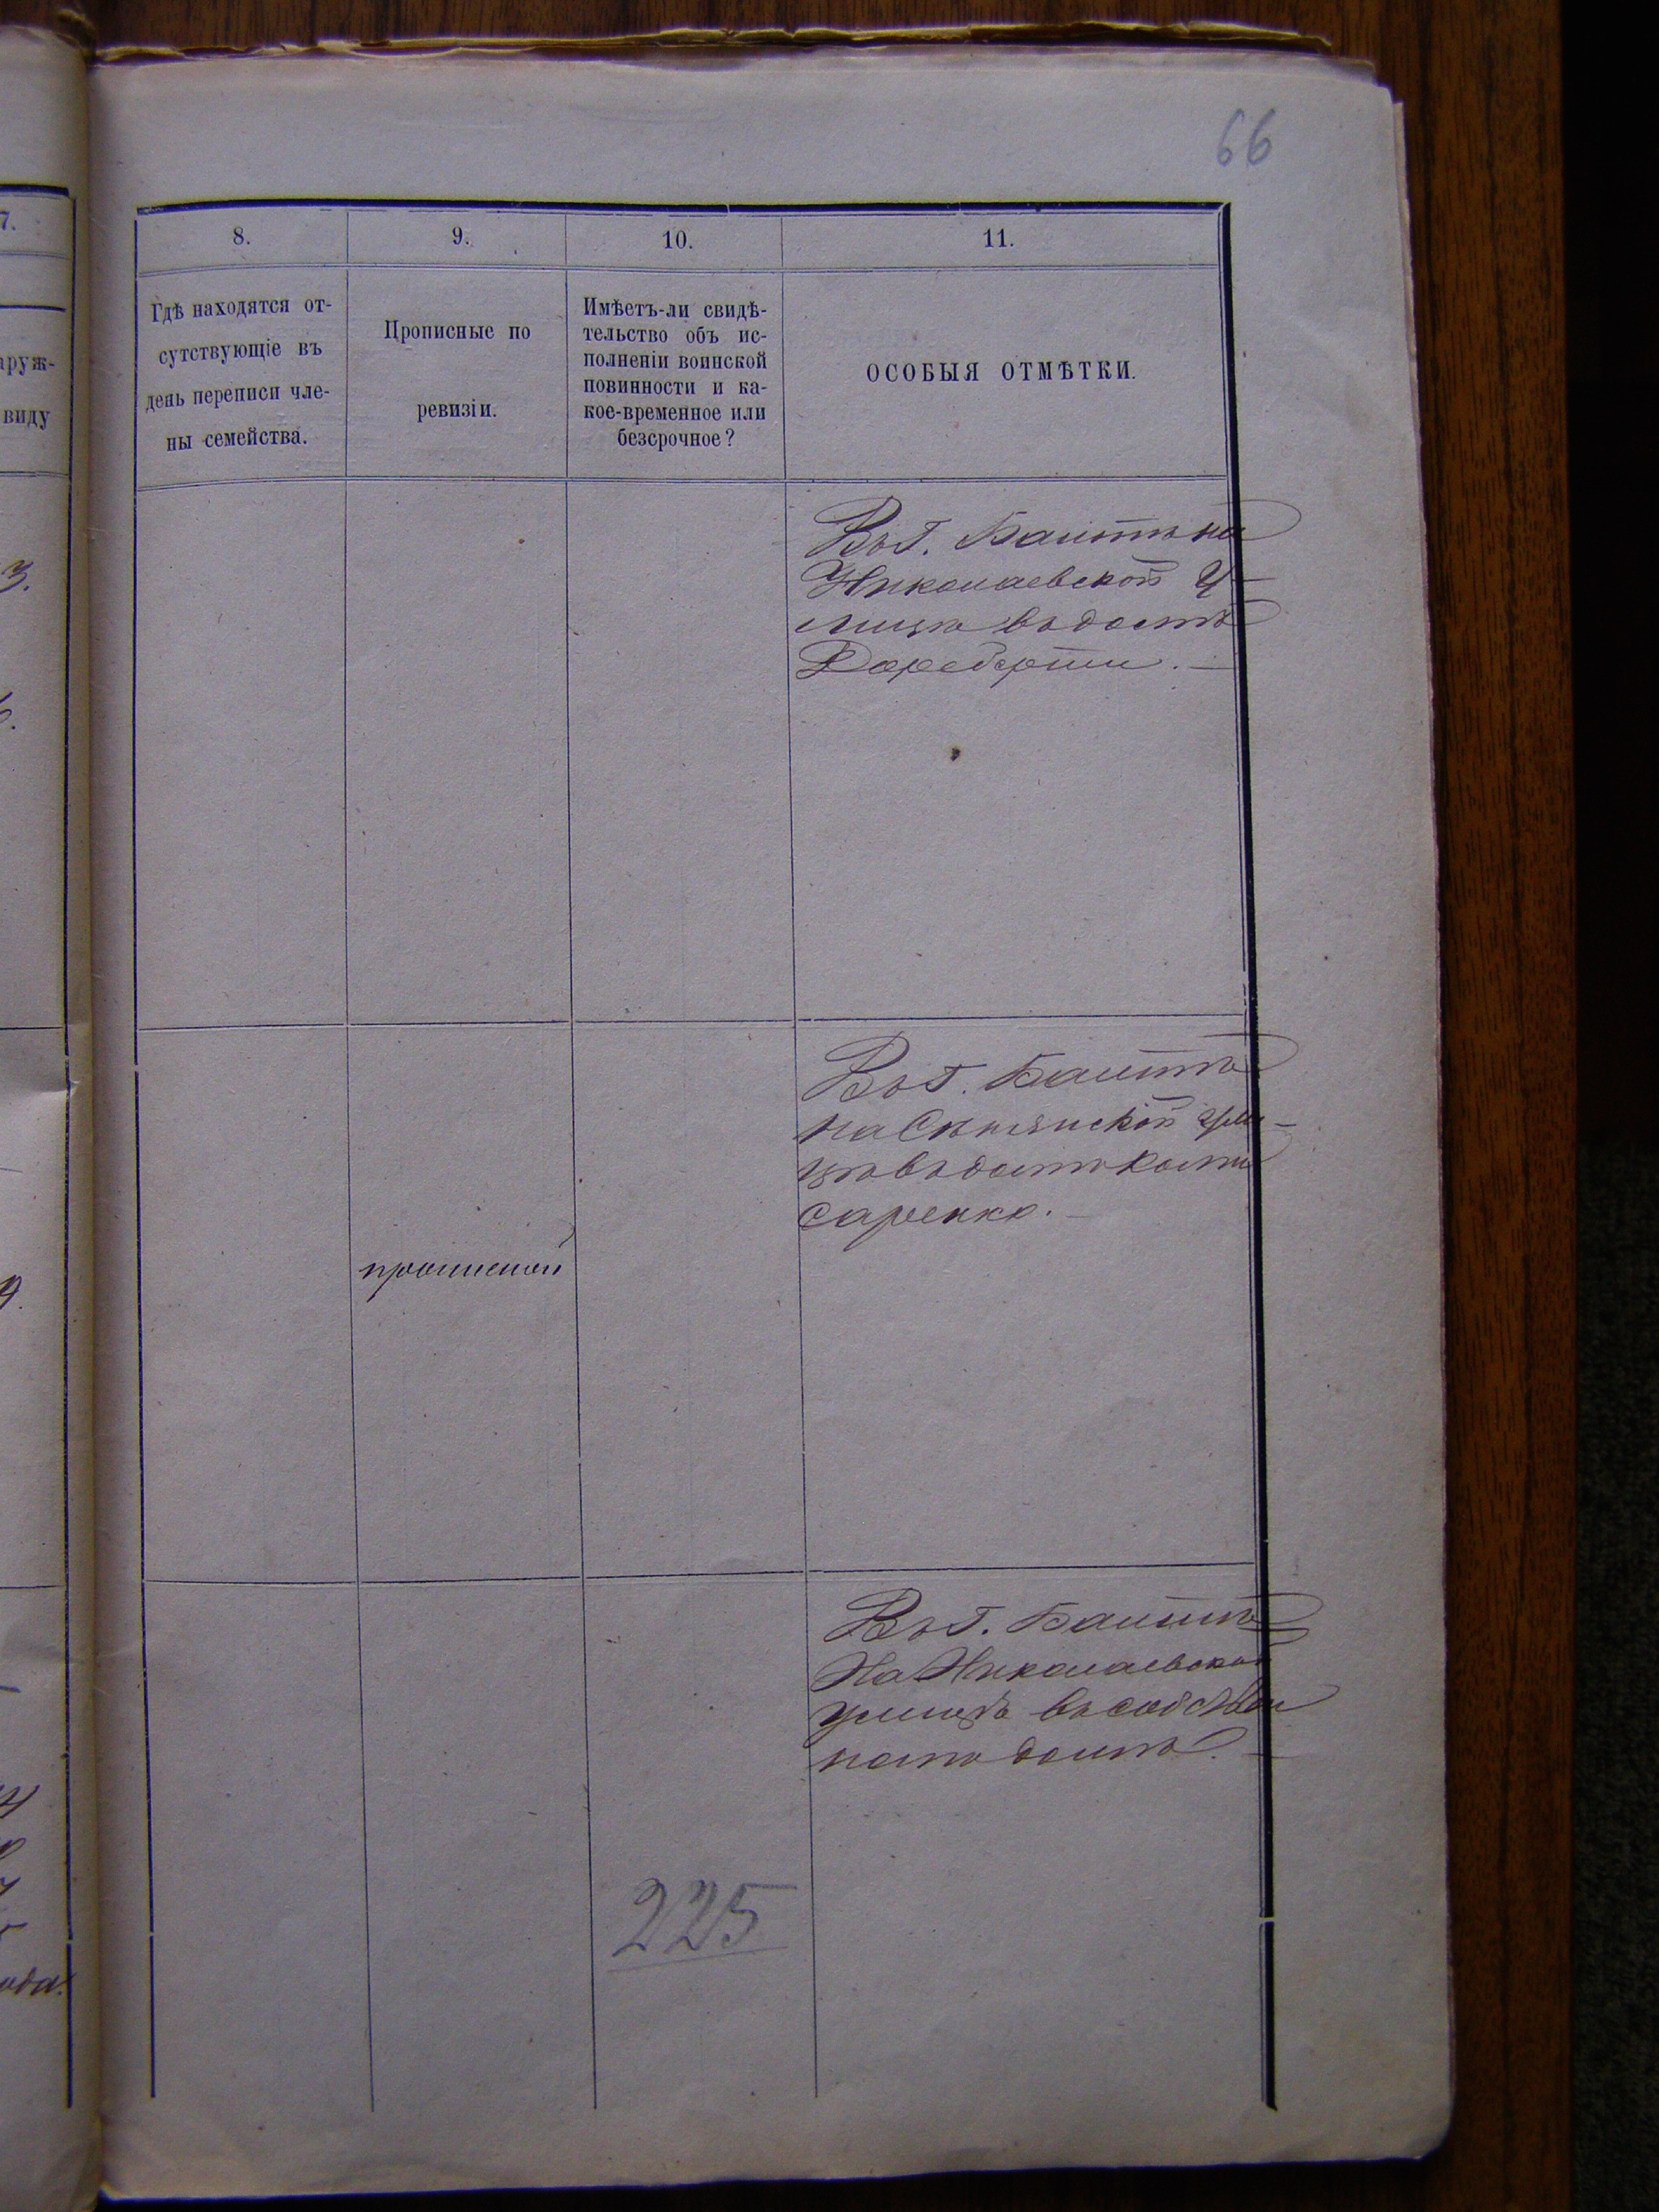 66
7.
8.
9.
10.
11.
аруж-
виду
Гдѣ находятся от-
сутствующіе въ
день переписи чле-
ны семейства.
Прописные по
ревизіи.
Имѣетъ-ли свидѣ-
тельство объ ис-
полненіи воинской
повинности и ка-
кое-временное или
безсрочное?
ОСОБЫЯ ОТМѢТКИ.
3.
Въ г. Балтѣ на
Николаевской у-
лицѣ въ домѣ
9.
прописной
Въ г. Балтѣ
на Сѣнянской ули-
цѣ въ домѣ
саренко.
Въ г. Балтѣ
На Николаевской
улицѣ въ собствен
номъ домѣ.
ода.
225